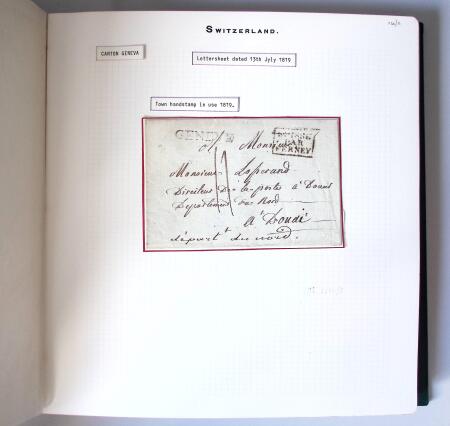 SWITZERLAND.
CANTON GENEVA
Lettersheet dated 13th Jyly 1819
Town handstamp in use 1819.
GENEVE
SUISSE
PAR
FERNEY
Monsieur
Monsieur
Directeur De la poste à Douai
Département du Nord
A Douai
départ^t du nord.